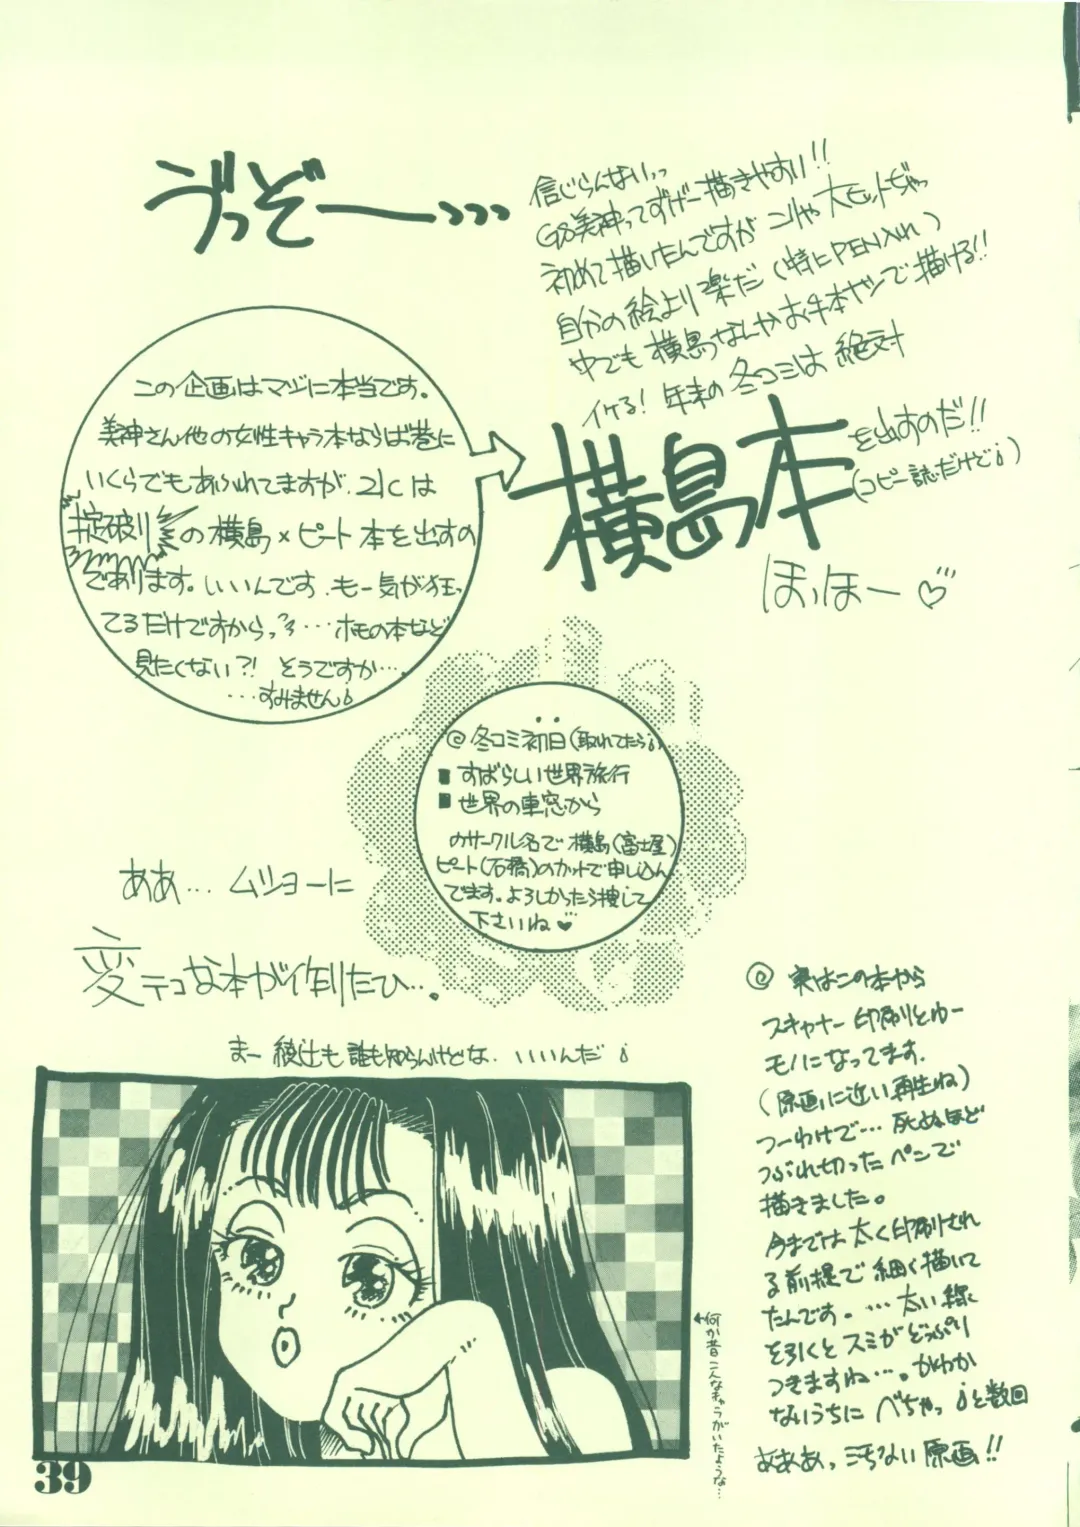 うっぞー……
信じらんないっ
GS美神ってすげー描きやすい!!
初めて描いたんですが こりゃ 大ヒットぢゃっ
自分の絵より楽だ(特にPEN入れ)
中でも 横島なんか お手本ナシで 描ける!!
イケる! 年末の冬コミは 絶対
横島本を出すのだ!!
(コピー誌だけど)
ほっほー♡
この企画はマジに本当です。
美神さん他の女性キャラ本ならば巷に
いくらでもあふれてますが、21Cは
掟破りの横島×ピート本を出すの
であります。いいんです、もー気が狂っ
てるだけですからっ…ホモの本など
見たくない?! そうですか…
…すみません
◎冬コミ初日(取れてたら)
■すばらしい世界旅行
■世界の車窓から
のサークル名で 横島(富士屋)
ピート(石橋)のカットで申し込ん
でます。よろしかったら捜して
下さいね♥
ああ… ムショーに
変テコな本が作りたひ…。
まー 綾辻も 誰も知らんけどな、いいんだ
◎ 実はこの本から
スキャナー印刷とゆー
モノになってます。
(原画に近い再生ね)
つーわけで… 死ぬほど
つぶれ切ったペンで
描きました。
今までは太く印刷され
る前提で細く描いて
たんです。…太い線
を引くとスミがどっぷり
つきますね…。かわか
ないうちに べちゃっと数回
あああっ汚ない原画!!
←何か昔こんなキャラがいたような…
39